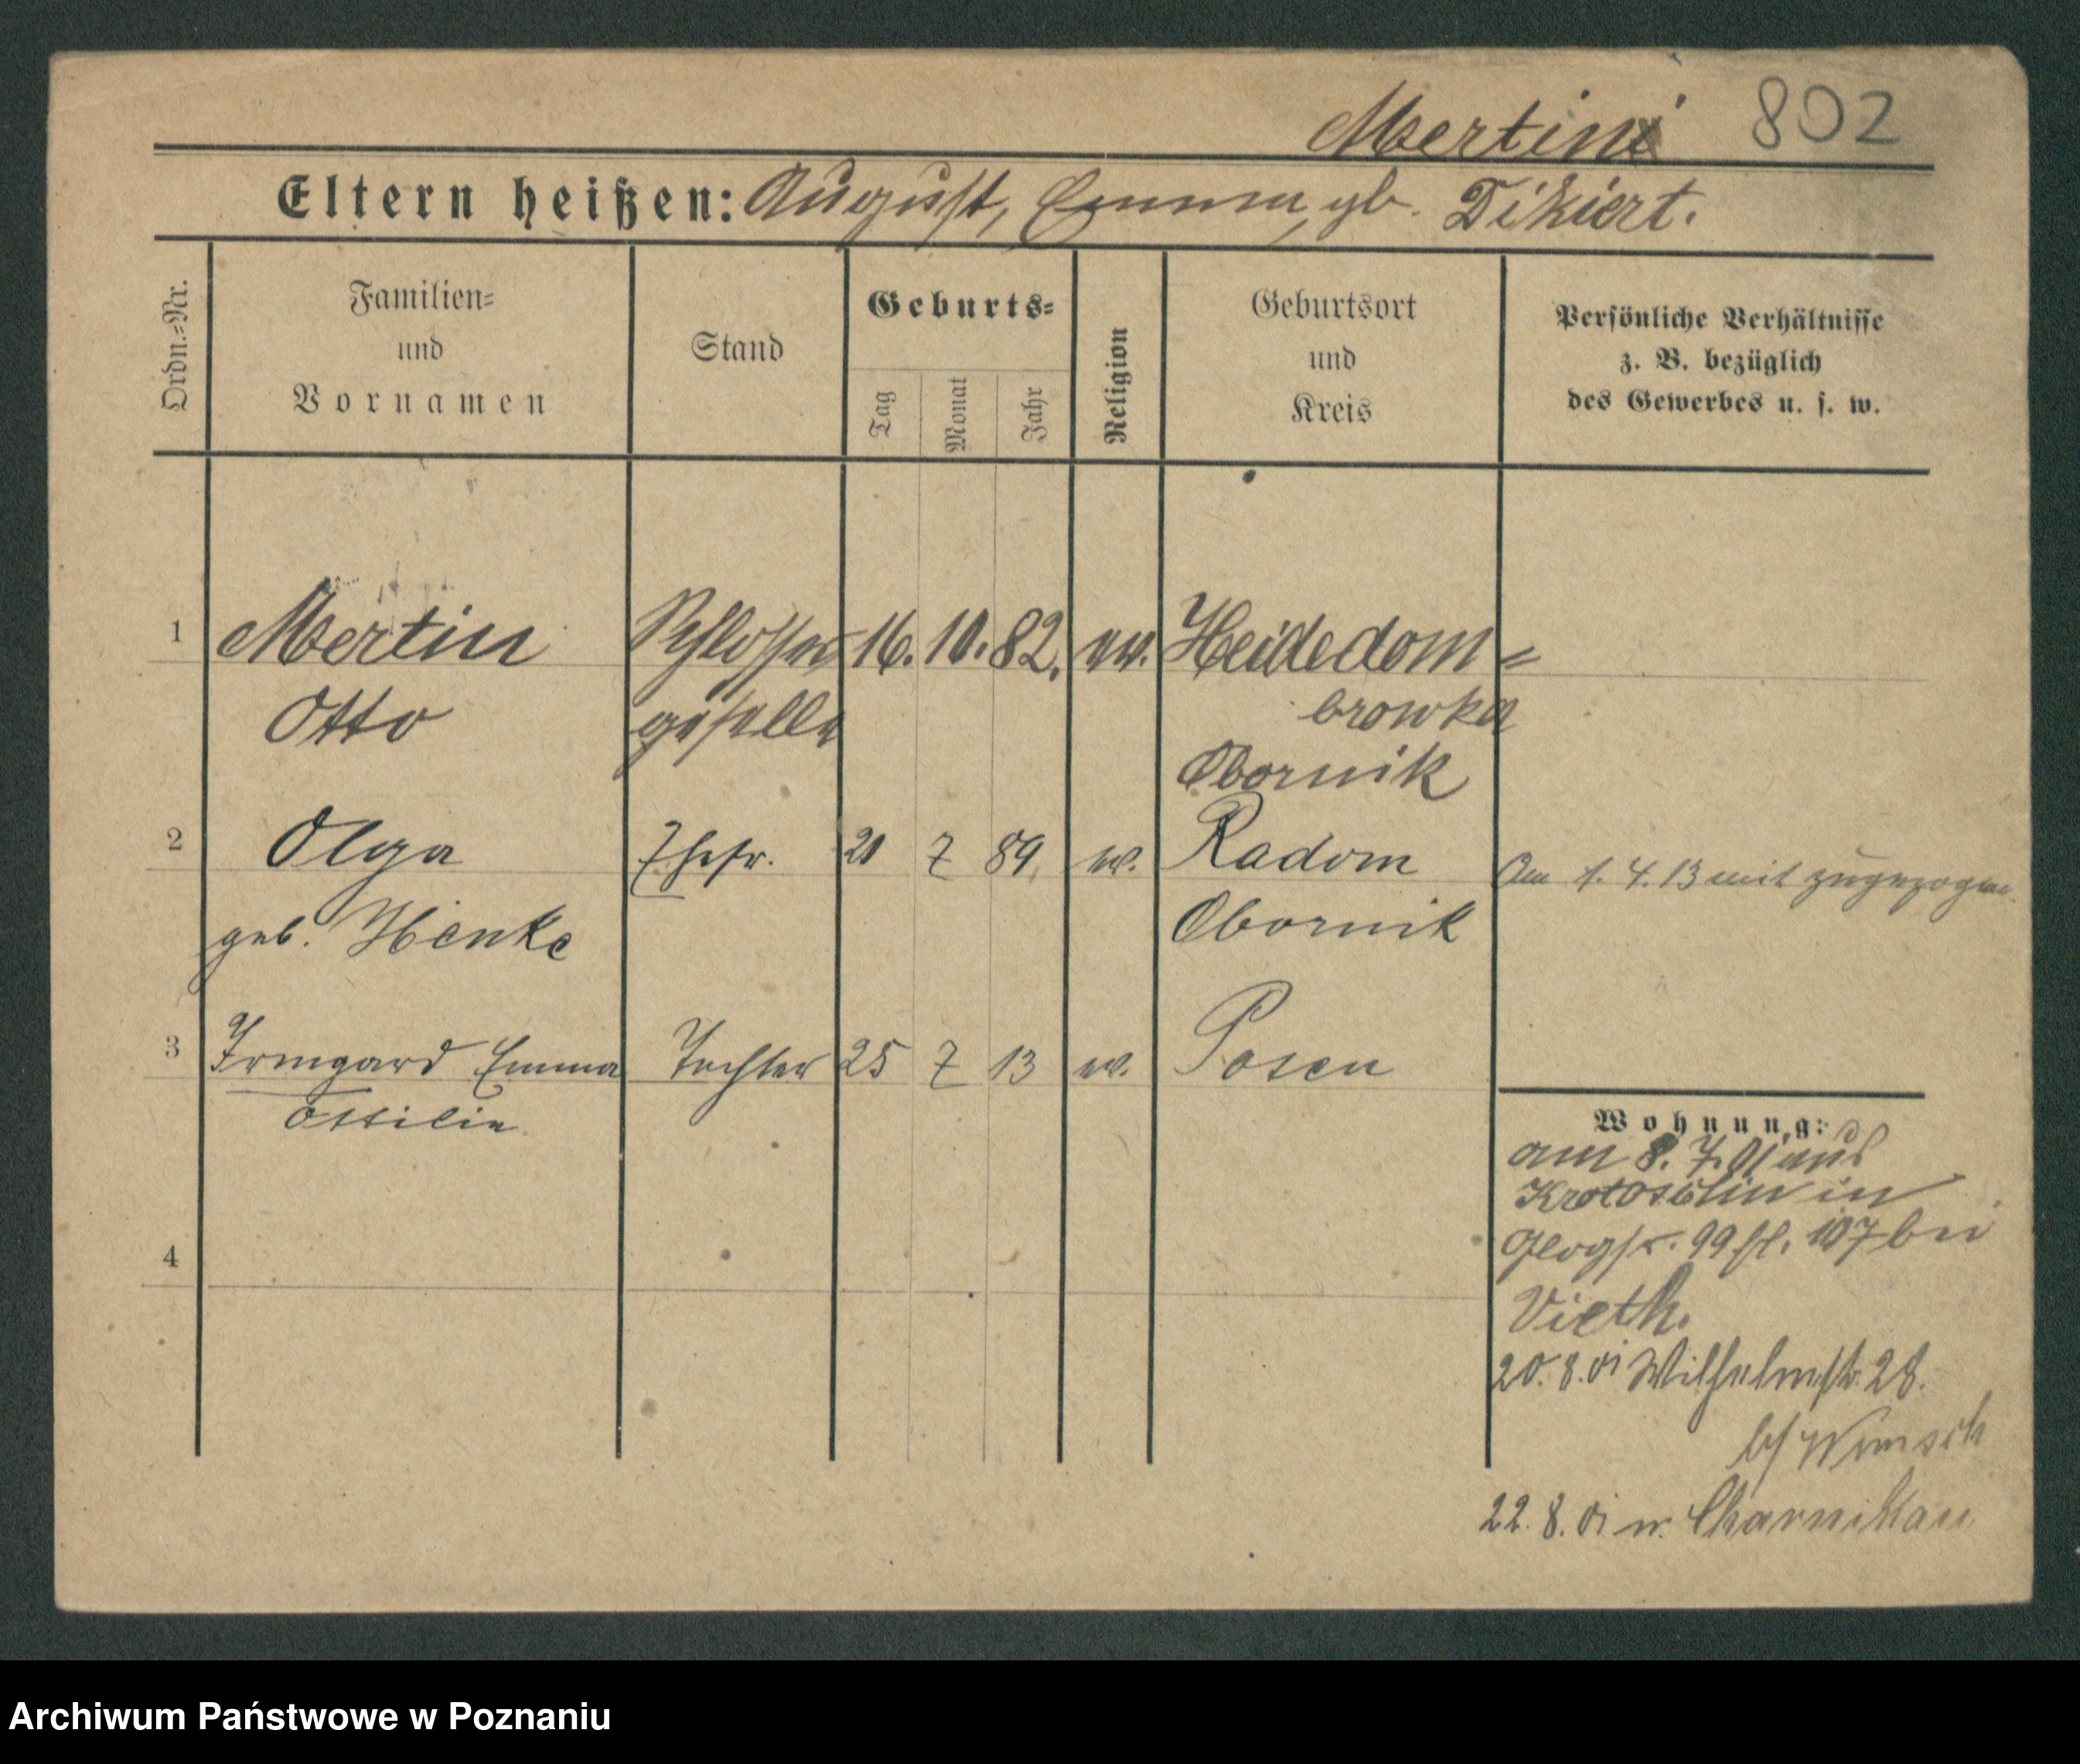 Mertin 802
Eltern heißen: August, Emma, gb. Dikiert.
Ordn.-Nr.
Familien- und Vornamen
Stand
Geburts-
Tag Monat Jahr
Religion
Geburtsort und Kreis
Persönliche Verhältnisse
z. B. bezüglich
des Gewerbes u. s. w.
1 Mertin Schlosser 16. 10. 82. ev. Heidedom=
Otto geselle browka
Obornik
2 Olga Ehefr. 21 7 89 ev. Radom Am 1. 4. 13 mit zugezogen
geb. Henke Obornik
3 Irmgard Emma Tochter 25 7 13 ev. Posen
Ottilie
Wohnung:
am 8. 7. 01 aus
Krotoschin in
Glogstr. 99 bei
Vieth.
20. 8. 01 Wilhelmstr. 28.
b/ Wunsch
4
22. 8. 01 n. Czarnikau
Archiwum Państwowe w Poznaniu